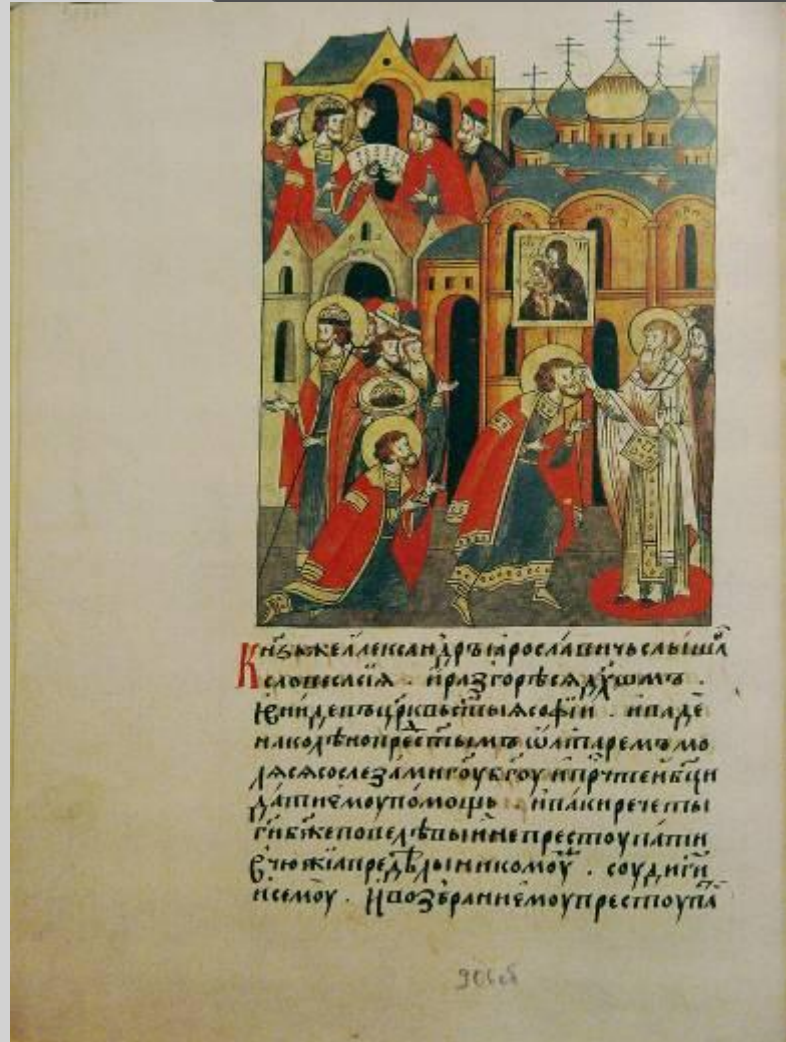 Кн҃зьжеалександръꙗрославичьслышⷶ
словесасїꙗ . иразгорѣсядх҃омъ .
ивнидевъцр҃квьст҃ыясофїи . ипаде
наколѣнопрест҃ымъѡлтаремъмо
лясясослезамигоубг҃оуипрч҃теибц҃и
датиемоупомощь . ипакиречеты
ги҃бж҃еповелѣвыинепрестоупати
вчюжїапредѣлыникомоу . соудиги҃
исемоу . ивозбраниемоупрестоупⷶ
906об